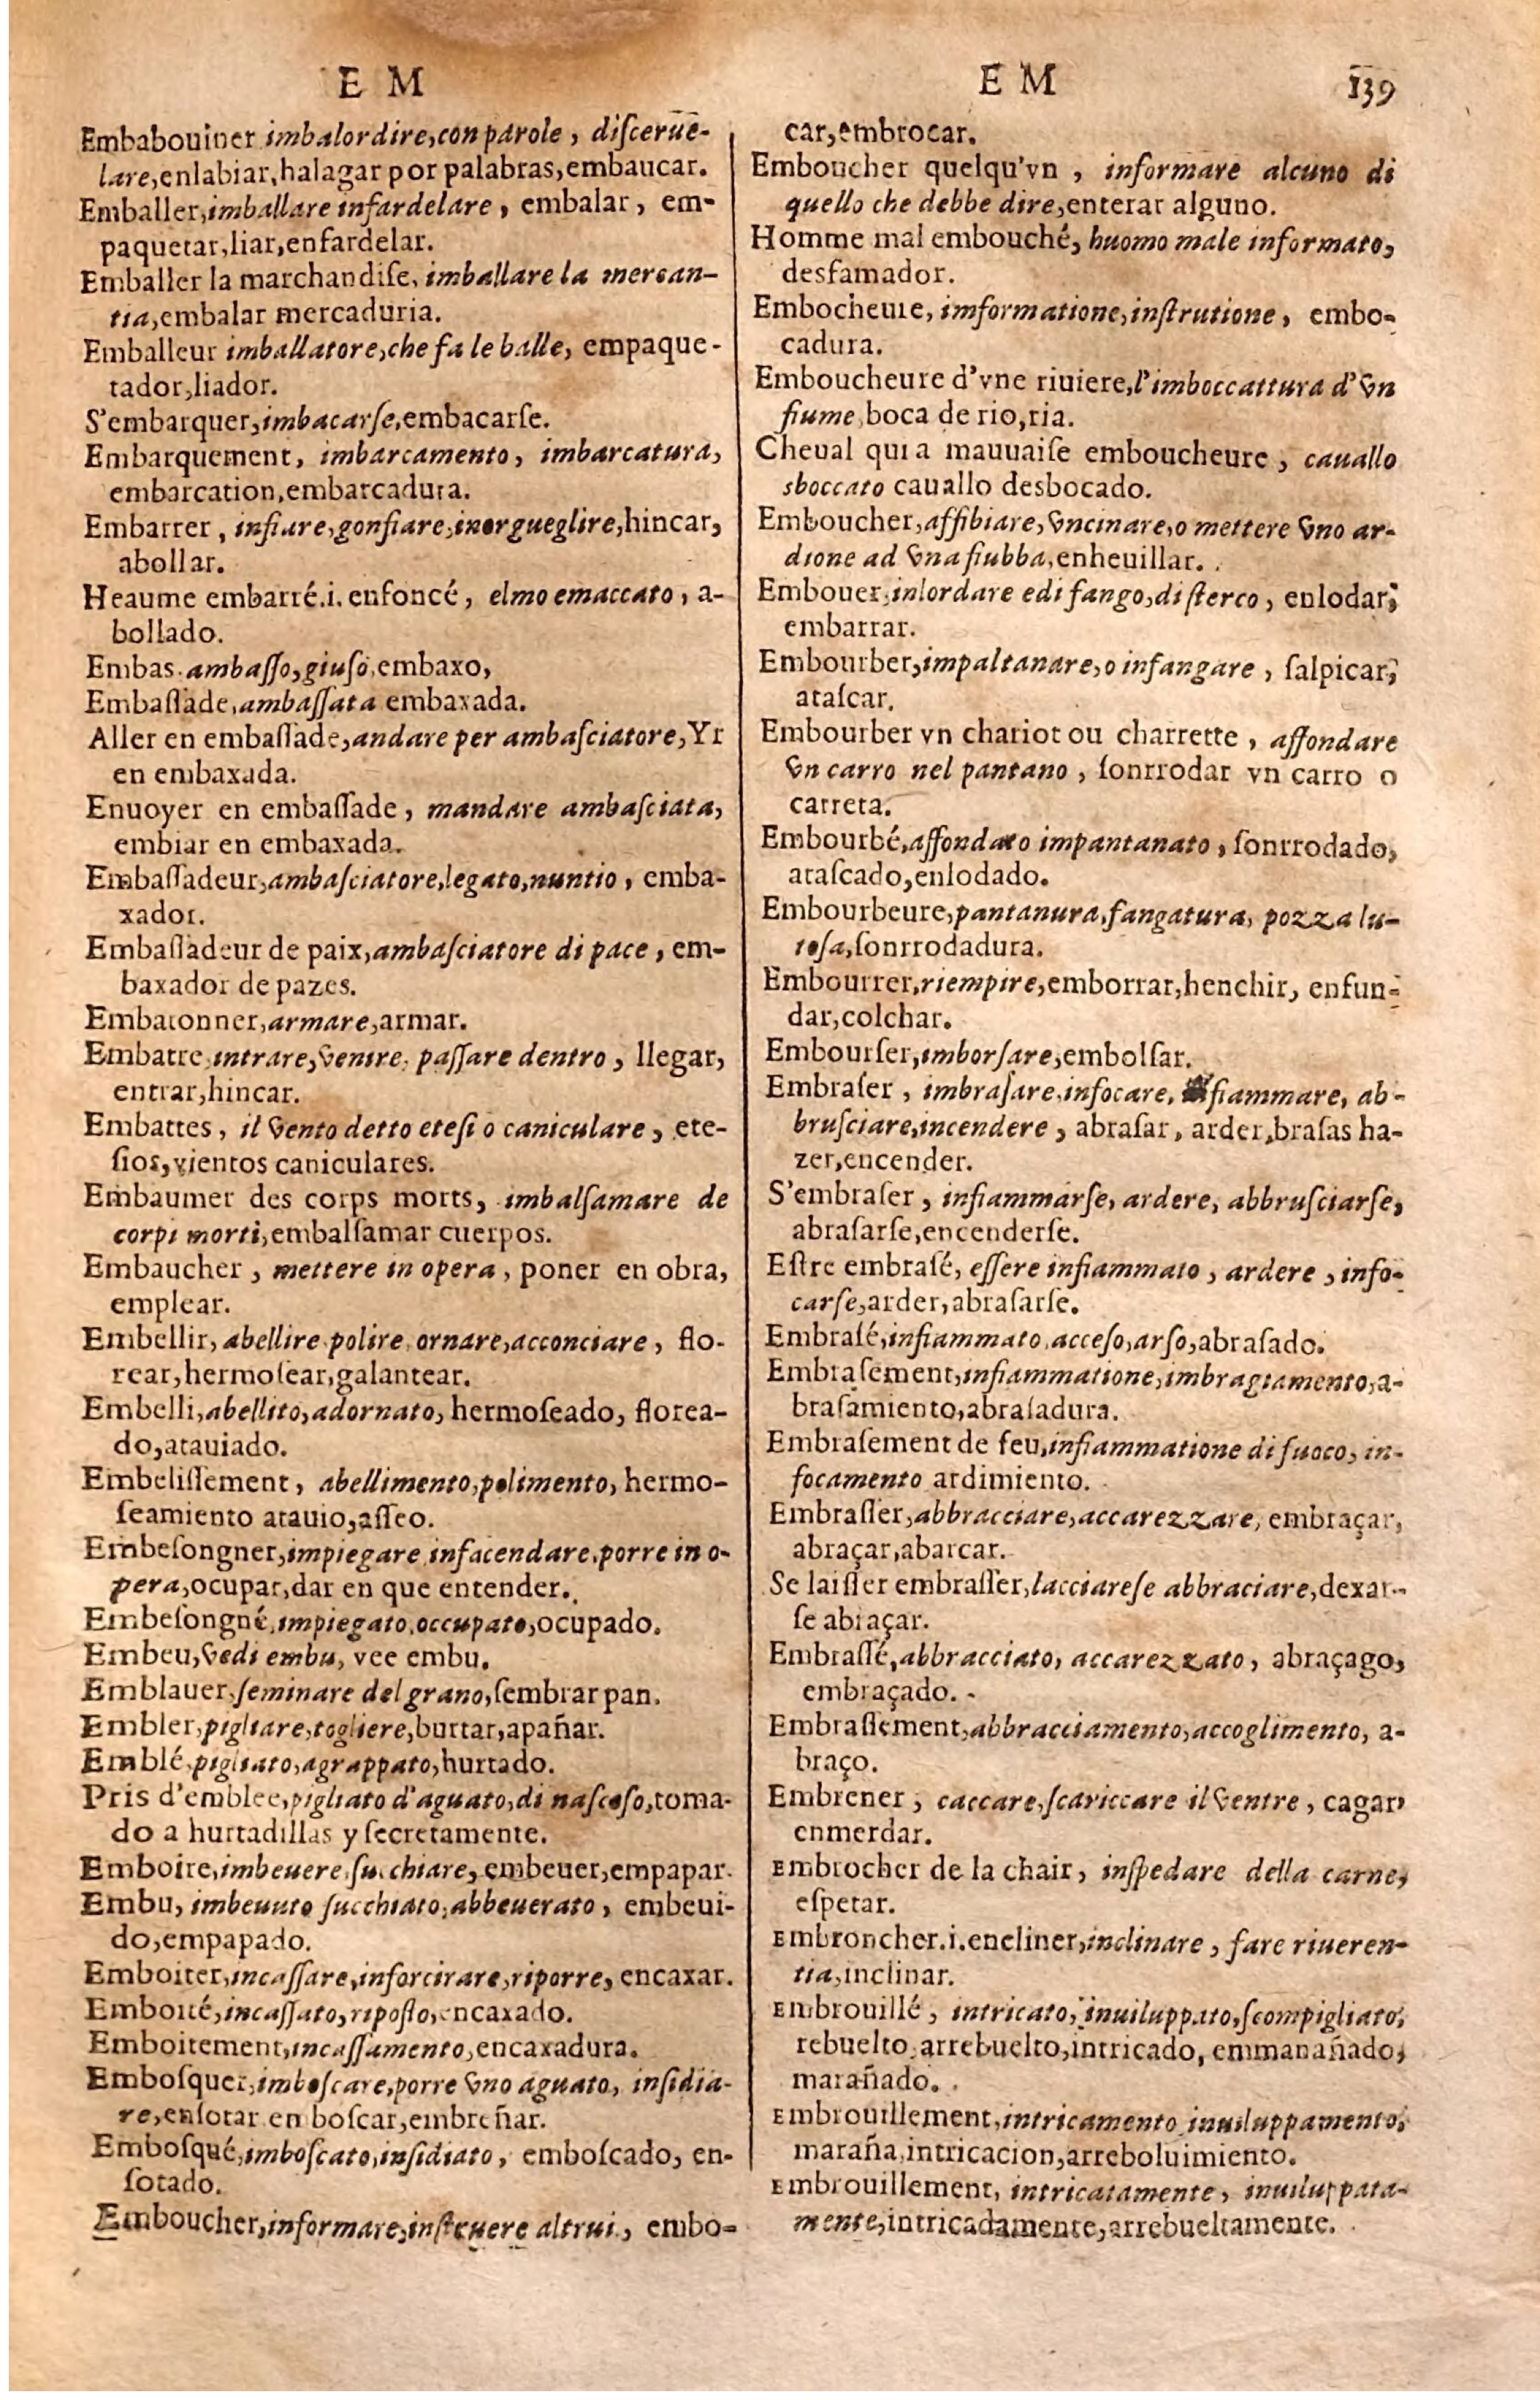 E M
Embabouiner imbalordire,con parole, diſcerue-
lare,enlabiar,halagar por palabras,embaucar.
Emballer,imballare infardelare, embalar, em-
paquetar,liar,enfardelar.
Emballer la marchandiſe, imballare la mercan-
tia,embalar mercaduria.
Emballeur imballatore,che fa le balle, empaque-
tador,liador.
S'embarquer,imbacarſe,embacarſe.
Embarquement, imbarcamento, imbarcatura,
embarcation,embarcadura.
Embarrer, infiare,gonfiare,inorgueglire,hincar,
abollar.
Heaume embarré.i.enfoncé, elmo emaccato, a-
bollado.
Embas.ambaſſo,giuſo,embaxo,
Embaſſade,ambaſſata embaxada.
Aller en embaſſade,andare per ambaſciatore,Yr
en embaxada.
Enuoyer en embaſſade, mandare ambaſciata,
embiar en embaxada.
Embaſſadeur,ambaſciatore,legato,nuntio, emba-
xador.
Embaſſadeur de paix,ambaſciatore di pace, em-
baxador de pazes.
Embatonner,armare,armar.
Embatre,intrare,venire, paſſare dentro, llegar,
entrar,hincar.
Embattes, il vento detto eteſi o caniculare, ete-
ſios,vientos caniculares.
Embaumer des corps morts, imbalſamare de
corpi morti,embalſamar cuerpos.
Embaucher, mettere in opera, poner en obra,
emplear.
Embellir, abellire polire, ornare,acconciare, flo-
rear,hermoſear,galantear.
Embelli,abellito,adornato, hermoſeado, florea-
do,atauiado.
Embeliſſement, abellimento,polimento, hermo-
ſeamiento atauio,aſſeo.
Embeſongner,impiegare infacendare,porre in o-
pera,ocupar,dar en que entender.
Embeſongné,impiegato,occupato,ocupado.
Embeu,vedi embu, vee embu.
Emblauer,ſeminare del grano,ſembrar pan.
Embler,pigliare,togliere,burtar,apañar.
Emblé,pigliato,agrappato,hurtado.
Pris d'emblee,pigliato d'aguato,di naſcoſo,toma-
do a hurtadillas y ſecretamente.
Emboire,imbeuere,ſucchiare, embeuer,empapar.
Embu, imbeuuto ſucchiato,abbeuerato, embeui-
do,empapado.
Emboiter,incaſſare,inforcirare,riporre, encaxar.
Emboité,incaſſato,ripoſto,encaxado.
Emboitement,incaſſamento,encaxadura.
Emboſquer,imboſcare,porre vno aguato, inſidia-
re,enſotar en boſcar,embreñar.
Emboſqué,imboſcato,inſidiato, emboſcado, en-
ſotado.
Emboucher,informare,inſtruere altrui, embo-
E M 139
car,embrocar.
Emboucher quelqu'vn, informare alcuno di
quello che debbe dire,enterar alguno.
Homme mal embouché, huomo male informato,
desfamador.
Embocheure, imformatione,inſtrutione, embo-
cadura.
Emboucheure d'vne riuiere,l'imboccattura d'vn
fiume,boca de rio,ria.
Cheual qui a mauuaiſe emboucheure, cauallo
sboccato cauallo desbocado.
Emboucher,affibiare,vncinare,o mettere vno ar-
dione ad vna fiubba,enheuillar.
Embouer,inlordare edi fango,di ſterco, enlodar,
embarrar.
Embourber,impaltanare,o infangare, ſalpicar,
ataſcar.
Embourber vn chariot ou charrette, affondare
vn carro nel pantano, ſonrrodar vn carro o
carreta.
Embourbé,affondato impantanato, ſonrrodado,
ataſcado,enlodado.
Embourbeure,pantanura,fangatura, pozza lu-
toſa,ſonrrodadura.
Embourrer,riempire,emborrar,henchir, enfun-
dar,colchar.
Embourſer,imborſare,embolſar.
Embraſer, imbraſare,infocare, fiammare, ab-
bruſciare,incendere, abraſar, arder,braſas ha-
zer,encender.
S'embraſer, infiammarſe, ardere, abbruſciarſe,
abraſarſe,encenderſe.
Eſtre embraſé, eſſere infiammato, ardere, info-
carſe,arder,abraſarſe.
Embraſé,infiammato,acceſo,arſo,abraſado.
Embraſement,infiammatione,imbragiamento,a-
braſamiento,abraſadura.
Embraſement de feu,infiammatione di fuoco, in-
focamento ardimiento.
Embraſſer,abbracciare,accarezzare, embraçar,
abraçar,abarcar.
Se laiſſer embraſſer,lacciareſe abbraciare,dexar-
ſe abraçar.
Embraſſé,abbracciato, accarezzato, abraçago,
embraçado.
Embraſſement,abbracciamento,accoglimento, a-
braço.
Embrener, caccare,ſcariccare il ventre, cagar,
enmerdar.
Embrocher de la chair, inſpedare della carne,
eſpetar.
Embroncher.i.encliner,inclinare, fare riueren-
tia,inclinar.
Embrouillé, intricato, inuiluppato,ſcompigliato,
rebuelto,arrebuelto,intricado, emmanañado,
marañado.
Embrouillement,intricamento inuiluppamento,
maraña,intricacion,arreboluimiento.
Embrouillement, intricatamente, inuiluppata-
mente,intricadamente,arrebueltamente.